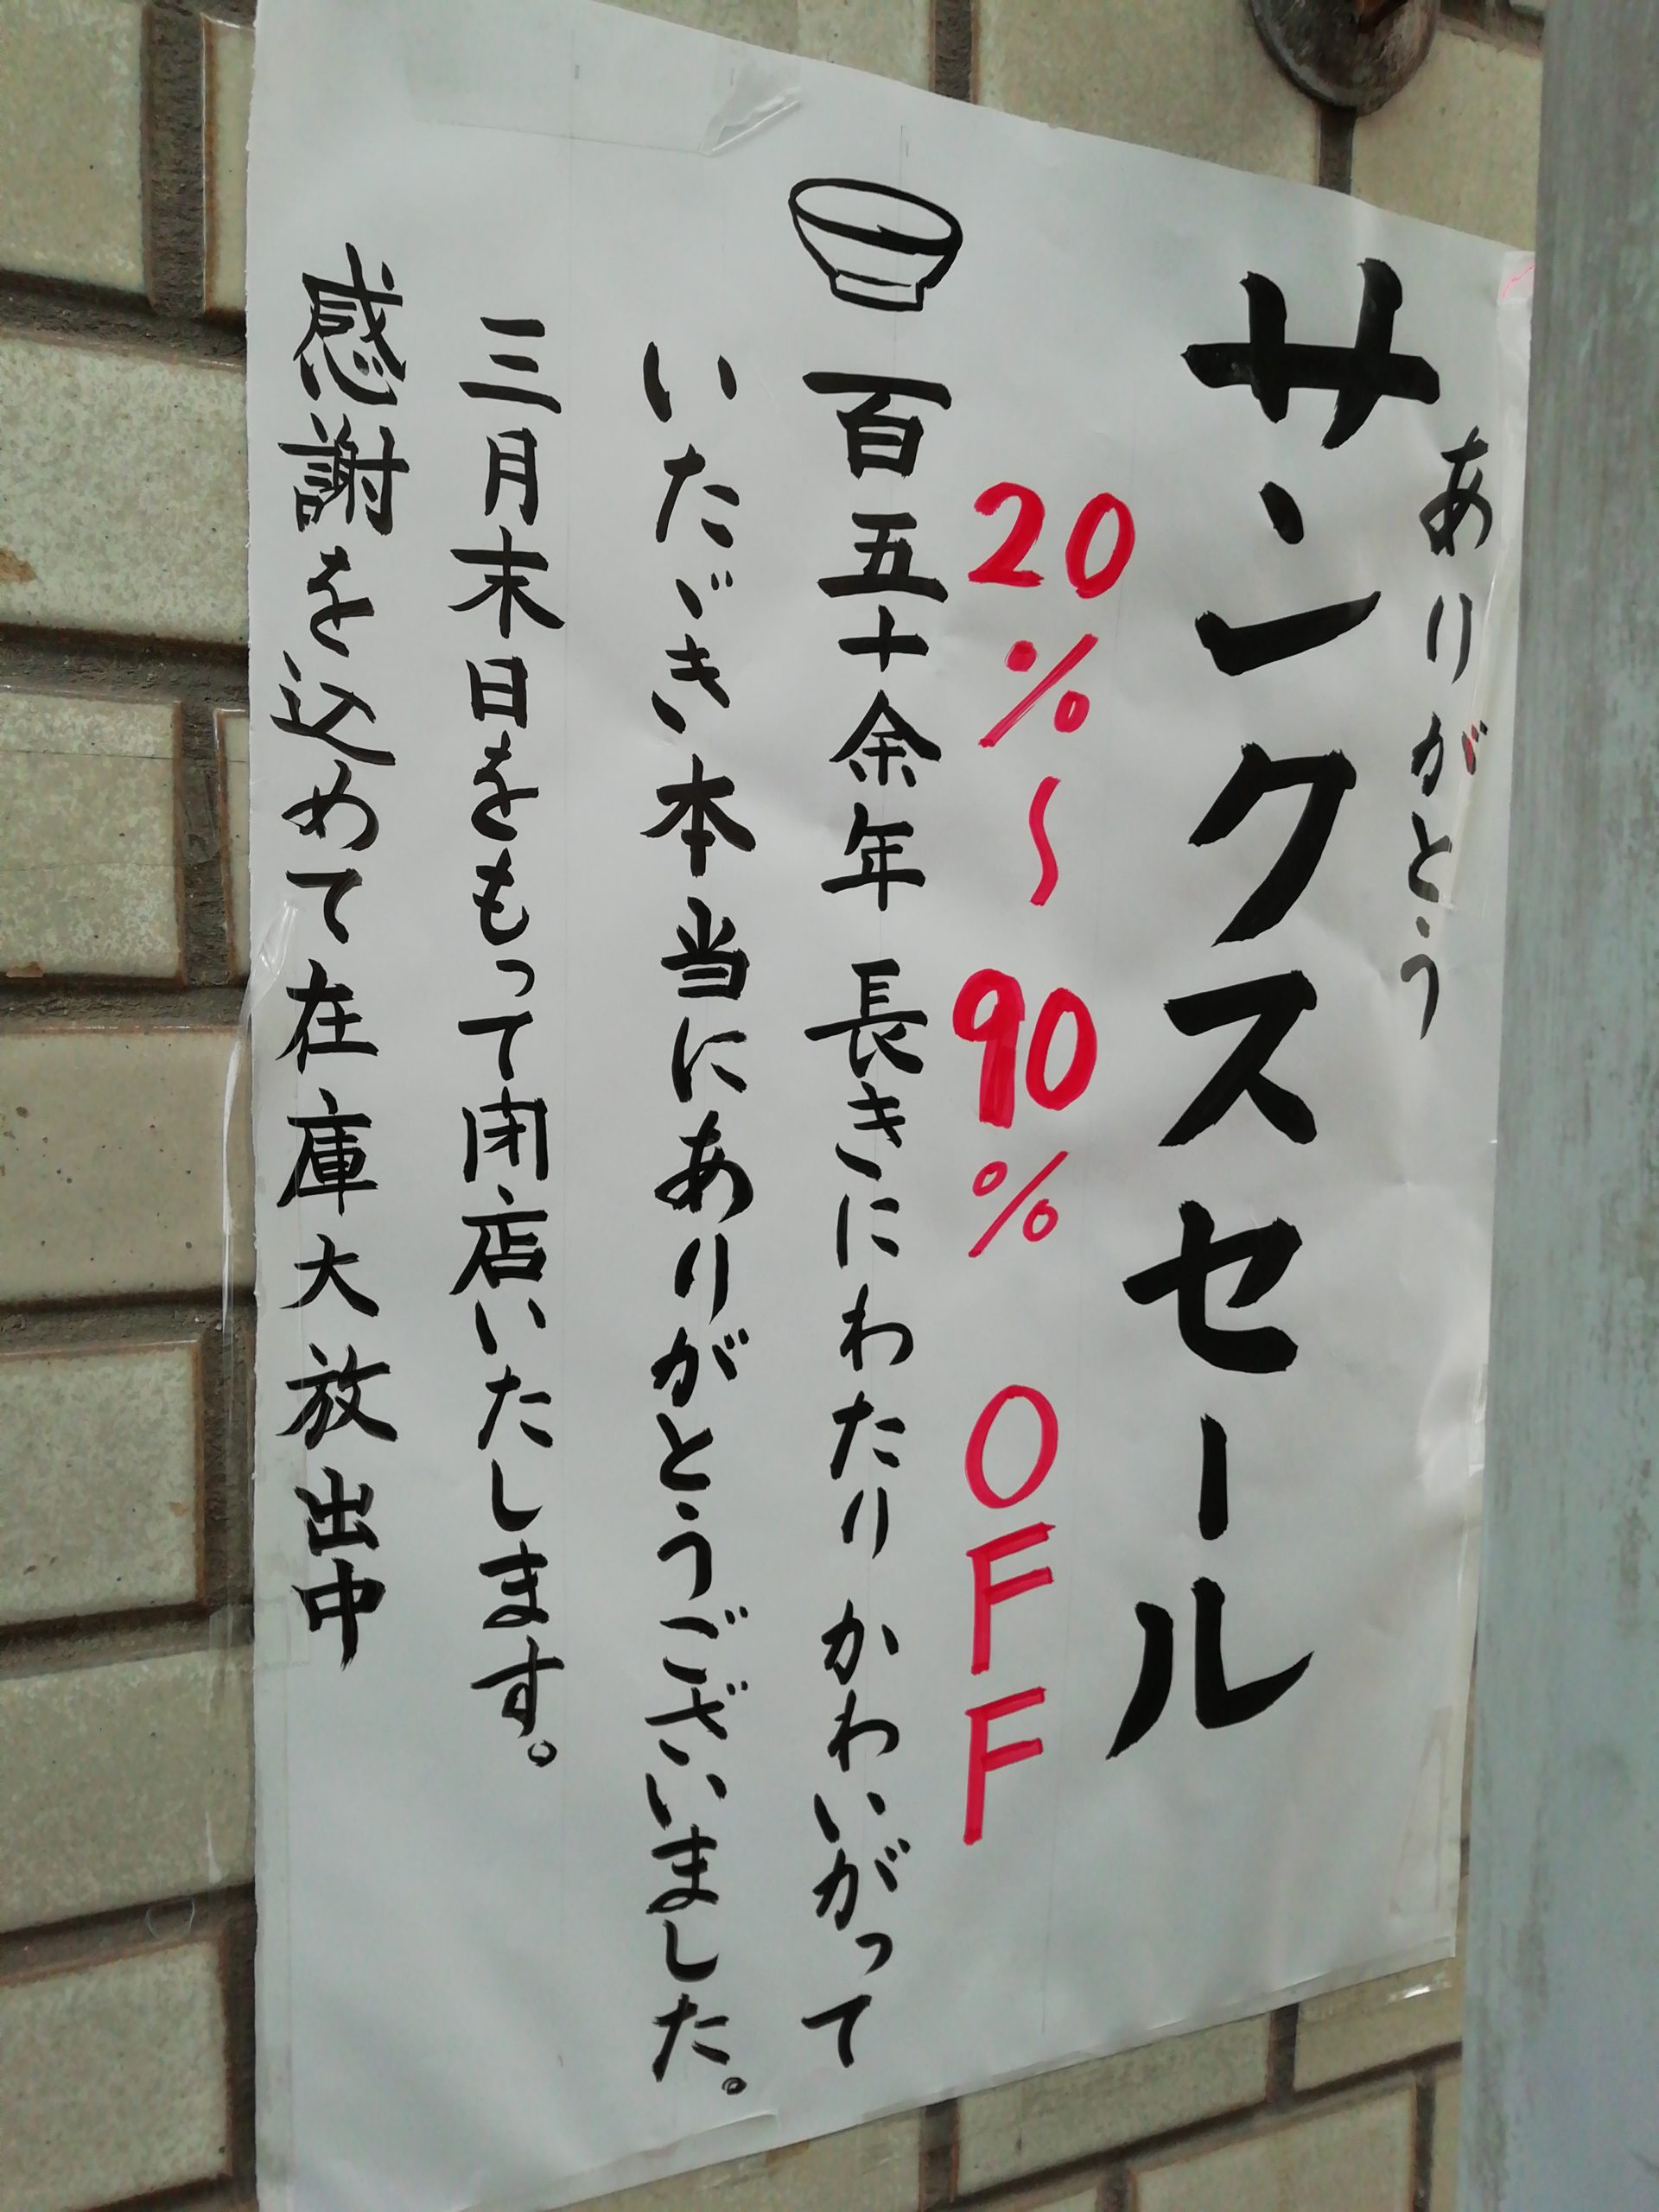 ありがとう
サンクスセール
20%〜90% OFF
百五十余年 長きにわたり かわいがって
いたゞき本当にありがとうございました。
三月末日をもって閉店いたします。
感謝を込めて在庫大放出中